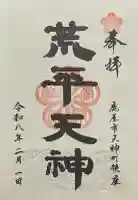 奉拝
鹿屋市天神町鎮座
荒平天神
令和八年二月一日